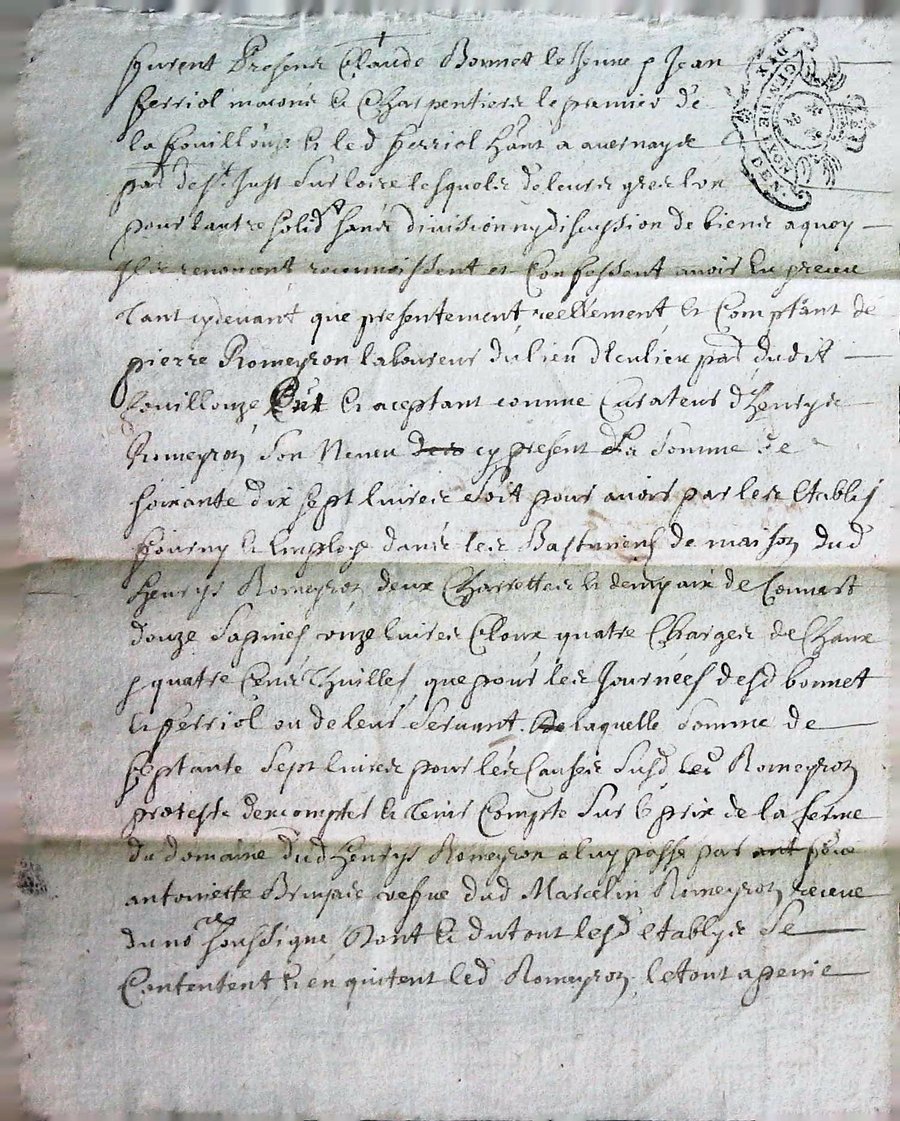 furent Presens Claude Bonnet le Jeune & Jean
fferriol macons et Charpentiers le premier de
la fouillouze et led fferriol hant a auernay
par de st Just sur loire lesquels de leurs gres lun
pour lautre solid sans diuision ny discussion de biens a quoy
Ils renoncent reconnoissent et Confessent auoir eu receu
tant cydeuant que presentement reellement et Comptant de
pierre Romeyron laboureur du lieu par dudit
fouillouze et aceptant comme Curateur dhenrys
Romeyron son Neueu cy present la somme de
soixante dix sept liures soit pour auoir par les etablis
fourny et Employe dans les Bastimens de maison dud
henrys Romeyron deux Charrettes et demy aix de Couuert
douze sapines onze liures Cloux quatre Charges de Chaux
& quatre Cens Thuilles que pour les Journées desd bonnet
et fferriol ou de leur seruant laquelle somme de
septante sept liures pour les Causes susd Romeyron
proteste de et tenir Compte sur le prix de la ferme
du domaine dud henrys Romeyron a luy passe par
antoinette vefue dud Marcelin Romeyron receue
du nore soussigne Dont et du tout lesd etablys se
Contentent et en quitent led Romeyron le tout a peine
GEN DE LYON
DEN
DEUX